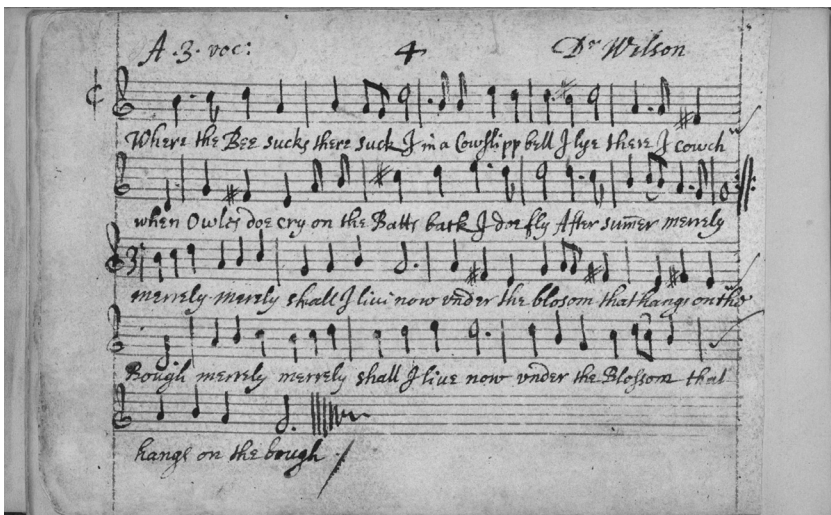 A. 3. voc: 4 Dr Wilson
Where the Bee sucks there suck I in a Cowslipp bell I lye there I cowch
when Owles doe cry on the Batts back I doe fly After sum̄er merrely
3
merrely merrely shall I live now vnder the blosom that hangs on the
Bough merrely merrely shall I live now vnder the Blossom that
hangs on the bough